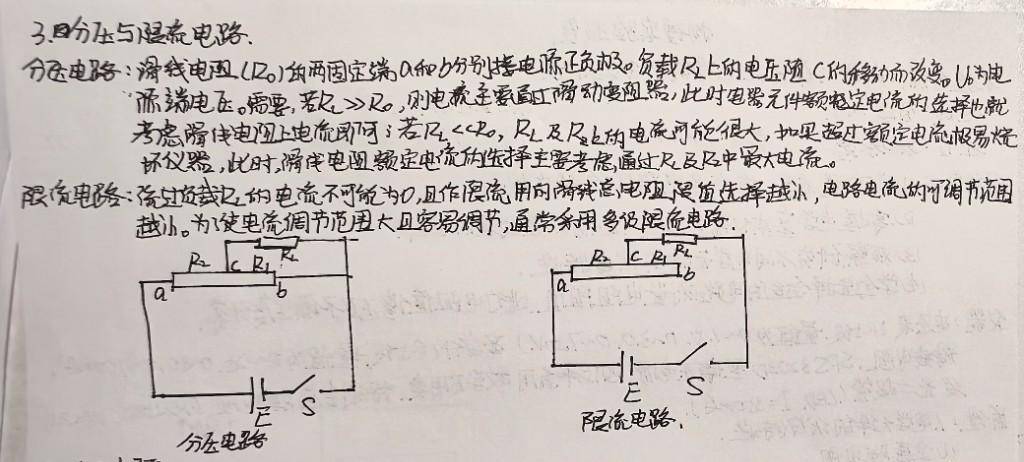 3.分压与限流电路.
分压电路:滑线电阻(R₀)的两固定端a和b分别接电源正负极。负载RL上的电压随C的移动而改变。U₀为电
源端电压。需要,若RL≫R₀,则电流主要通过滑动变阻器,此时电路元件额定电流的选择也就
考虑滑线电阻上电流即可;若RL<<R₀,RL及R₂上的电流可能很大,如果超过额定电流极易烧
坏仪器,此时,滑线电阻额定电流的选择主要考虑通过RL及R₂中最大电流。
限流电路:流过负载RL的电流不可能为0,且作限流用的滑线电阻阻值选择越小,电路电流的可调节范围
越小。为了使电流调节范围大且容易调节,通常采用多级限流电路.
RL
R₂ C R₁
a b
E S
分压电路
RL
R₂ C R₁
a b
E S
限流电路.